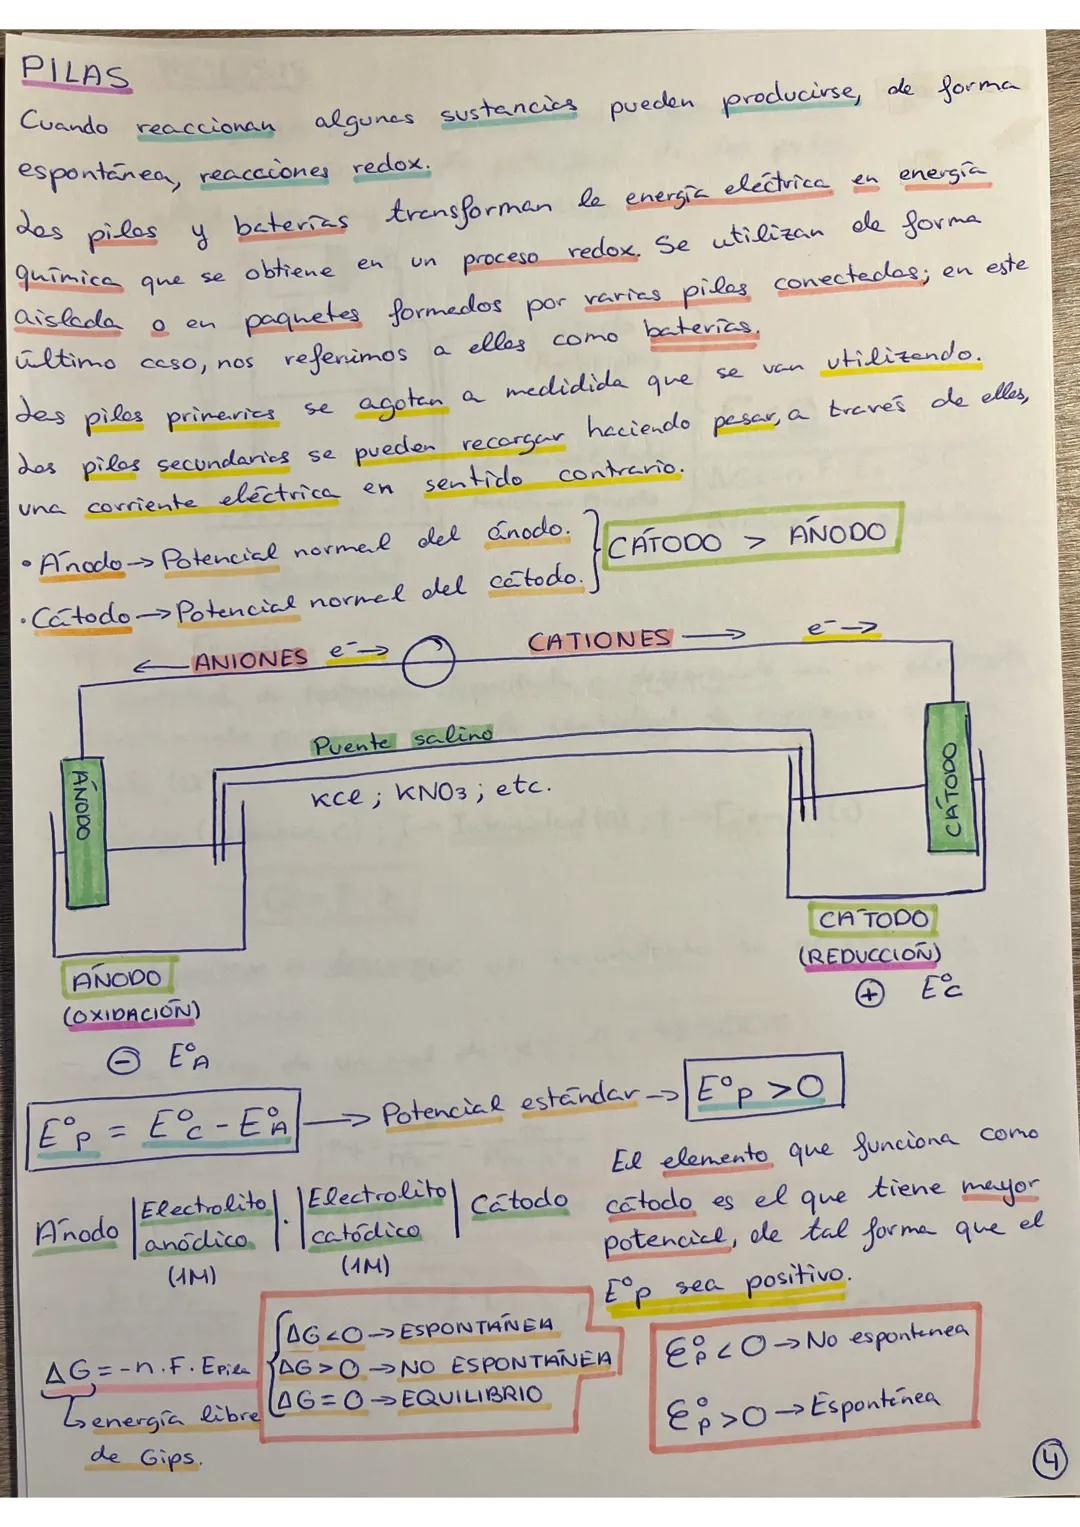 PILAS
Cuando reaccionan algunas sustancias pueden producirse, de forma
espontánea, reacciones redox.
Las pilas y baterías transforman la energía eléctrica en energía
química que se obtiene en un proceso redox. Se utilizan de forma
aislada o en paquetes formados por varias pilas conectadas; en este
último caso, nos referimos a ellas como baterías.
Las pilas primarias se agotan a medidida que se van utilizando.
Las pilas secundarias se pueden recargar haciendo pasar, a través de ellas,
una corriente eléctrica en sentido contrario.
• Ánodo → Potencial normal del ánodo.
• Cátodo → Potencial normal del cátodo.
CÁTODO > ÁNODO
← ANIONES e⁻ →
CATIONES →
e⁻ →
Puente salino
KCl ; KNO3 ; etc.
ÁNODO
CÁTODO
ÁNODO
(OXIDACIÓN)
⊖ E°A
CÁTODO
(REDUCCIÓN)
⊕ E°C
E°p = E°C - E°A → Potencial estándar → E°p > 0
Ánodo | Electrolito anódico (1M) | . | Electrolito catódico (1M) | Cátodo
El elemento que funciona como
cátodo es el que tiene mayor
potencial, de tal forma que el
E°p sea positivo.
ΔG = -n. F. Epila
energía libre
de Gips.
ΔG < 0 → ESPONTÁNEA
ΔG > 0 → NO ESPONTÁNEA
ΔG = 0 → EQUILIBRIO
E°p < 0 → No espontánea
E°p > 0 → Espontánea
4